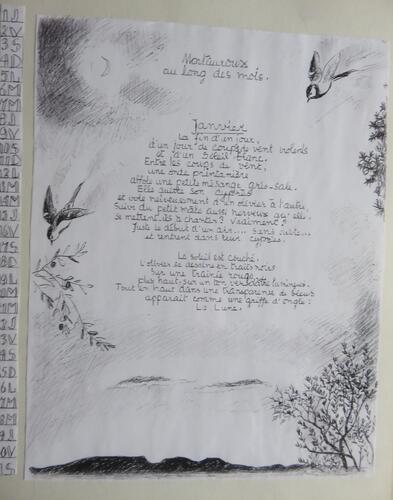 Montauroux
au long des mois.
Janvier
La fin d'un jour,
d'un jour de coupures vent violents
et d'un Soleil blanc.
Entre les coups de vent,
une onde printanière
affole une petite mésange gris-sale.
Elle quitte son cyprès
et vole nerveusement d'un olivier à l'autre
Suivi du petit mâle aussi nerveux qu'elle.
se mettent-ils à chanter? Vraiment?
Juste le début d'un air.... Sans suite...
et rentrent dans leur cyprès.
Le soleil est couché.
L'olivier se dessine en traits noirs
Sur une traînée rouge,
plus haut, sur un ton verdâtre lumineux.
Tout en haut dans une transparence de bleus
apparaît comme une griffe d'ongle:
La Lune.
1J
2V
3S
4D
5L
6M
7M
8J
9V
10S
11D
12L